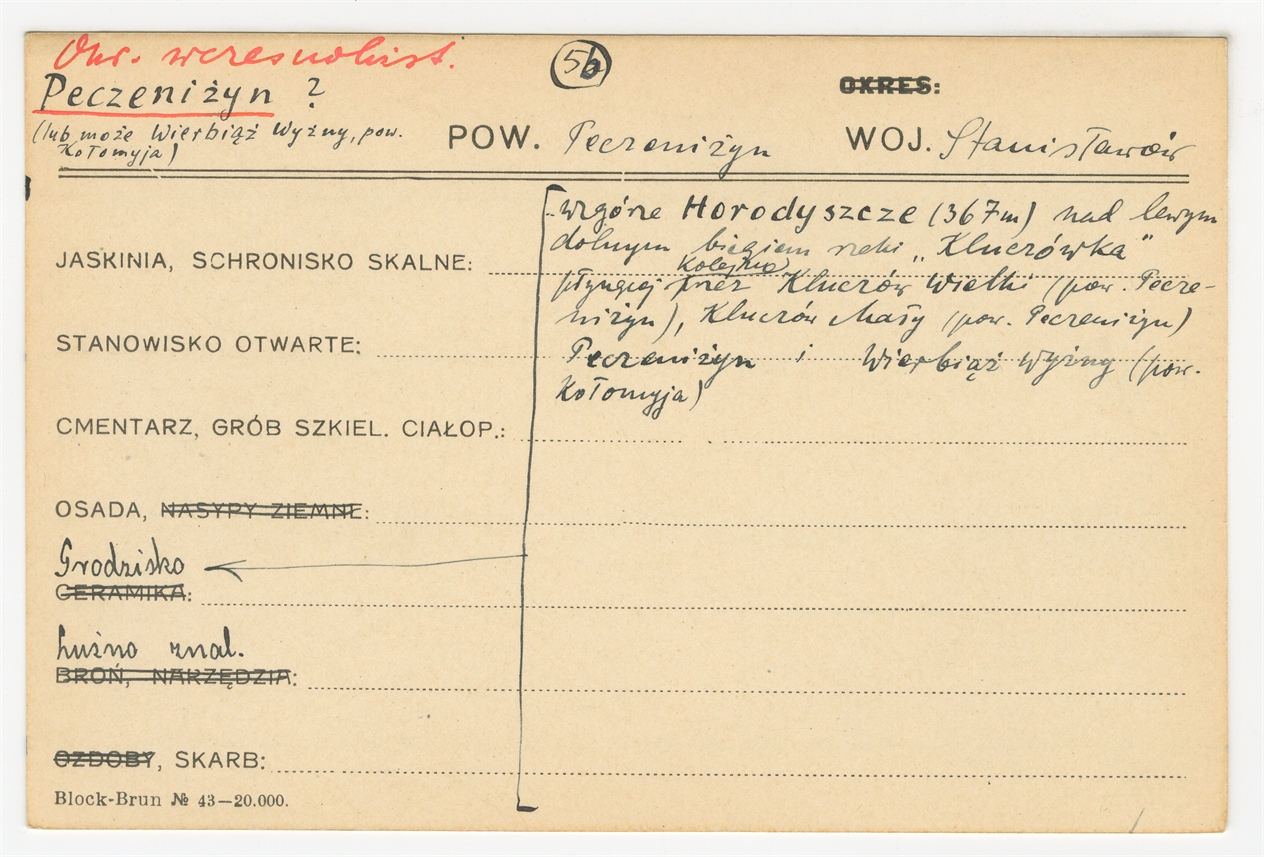 Okr. wczesnohist.
5b
OKRES:
Peczeniżyn ?
(lub może Wierbiąż Wyżny, pow. Kołomyja)
POW. Peczeniżyn
WOJ. Stanisławów
wzgórze Horodyszcze (367m) nad lewym
dolnym biegiem rzeki „Kluczówka"
kolejno
płynącej przez Kluczów Wielki (pow. Pecze-
niżyn), Kluczów Mały (pow. Peczeniżyn)
Peczeniżyn i Wierbiąż Wyżny (pow.
Kołomyja)
JASKINIA, SCHRONISKO SKALNE:
STANOWISKO OTWARTE:
CMENTARZ, GRÓB SZKIEL. CIAŁOP.:
OSADA, NASYPY ZIEMNE:
Grodzisko
CERAMIKA:
Luźno znal.
BROŃ, NARZĘDZIA:
OZDOBY, SKARB:
Block-Brun № 43—20.000.